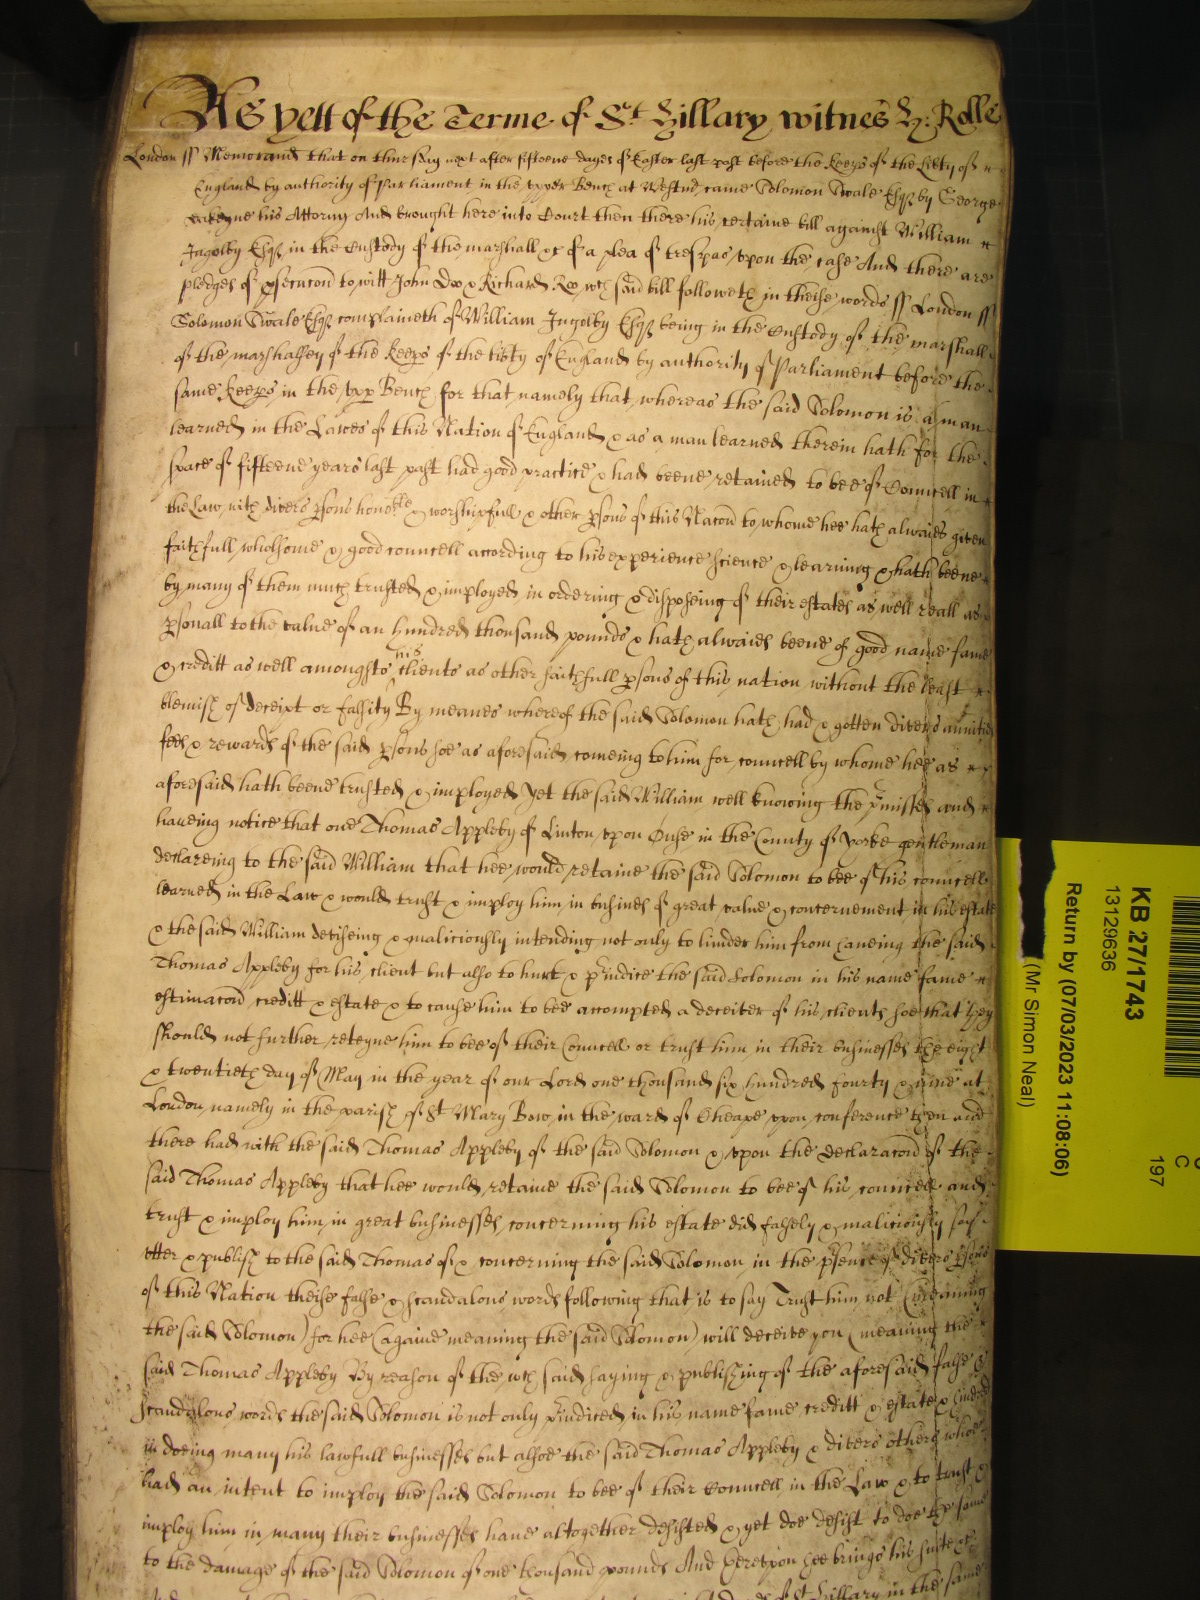 As yett of the Terme of St Hillary witnes H: Rolle
London ss Memorand that on thursday next after fifteene dayes of Easter last past before the Keeps of the Libty of
England by authority of Parliament in the upper Bench at Westm came Solomon Swale Esqr by George
his Attorny And brought here into Court then there his certaine bill against William
Ingolby Esqr in the custody of the marshall &c of a plea of trespas upon the case And there are
pledges of psecucon to witt John Doo & Richard Roo wch said bill followeth in theise words ss London ss
Solomon Swale Esqr complaineth of William Ingolby Esqr being in the Custody of the marshall
of the marshallsey of the Keeps of the libty of England by authority of Parliament before the
same Keeps in the upp Bench for that namely that whereas the said Solomon is a man
learned in the Lawes of this Nation of England & as a man learned therein hath for the
space of fifteene yeares last past had good practice & had beene retained to bee of Councell in
the Law with divers psons honoble & worshipfull & other psons of this Nacon to whome hee hath alwaies given
faithfull wholsome & good councell according to his experience science & learning & hath beene
by many of them much trusted & imployed in ordering & disposeing of their estates as well reall as
psonall to the value of an hundred thousand pounds & hath alwaies beene of good name fame
& creditt as well amongste his clients as other faithfull psons of this nation without the least
blemish of deceipt or falsity By meanes whereof the said Solomon hath had & gotten divers
fees & rewards of the said psons soe as aforesaid comeing to him for councell by whome hee as
aforesaid hath beene trusted & imployed Yet the said William well knowing the pmisses and
haueing notice that one Thomas Appleby of Linton upon Ouse in the County of Yorke gentleman
declareing to the said William that hee would retaine the said Solomon to bee of his councell
learned in the Law & would trust & imploy him in busines of great value & concernement in his estate
& the said William deviseing & maliciously intending not only to hinder him from haueing the said
Thomas Appleby for his client but also to hurt & preiudice the said Solomon in his name fame
estimacon creditt & estate & to cause him to bee accompted a deceiver of his clients soe that they
should not further reteyne him to bee of their Councell or trust him in their businesses the eight
& twentieth day of May in the year of our Lord one thousand six hundred fourty & nine at
London namely in the parish of St Mary Bow in the ward of Cheape upon conference then and
there had with the said Thomas Appleby of the said Solomon & upon the declaracon of the
said Thomas Appleby that hee would retaine the said Solomon to bee of his councell and
trust & imploy him in great businesses concerning his estate did falsely & maliciously say
utter & publish to the said Thomas of & concerning the said Solomon in the psence of divers psons
of this Nation theise false & scandalous words following that is to say Trust him not (meaning
the said Solomon) for hee (againe meaning the said Solomon) will deceive you (meaning the
said Thomas Appleby By reason of the wch said saying & publishing of the aforesaid false &
scandalous words the said Solomon is not only preiudiced in his name fame creditt & estate &
in doeing many his lawfull businesses but alsoe the said Thomas Appleby & divers others whoe
had an intent to imploy the said Solomon to bee of their Councell in the Law & to trust &
imploy him in many their businesses haue altogether desisted & yet doe desist to doe the same
to the damage of the said Solomon of one thousand pounds And hereupon hee brings his suite &c
of St Hillary in the same
KB 27/1743
13129636
Return by (07/03/2023 11:08:06)
(Mr Simon Neal)
C
197